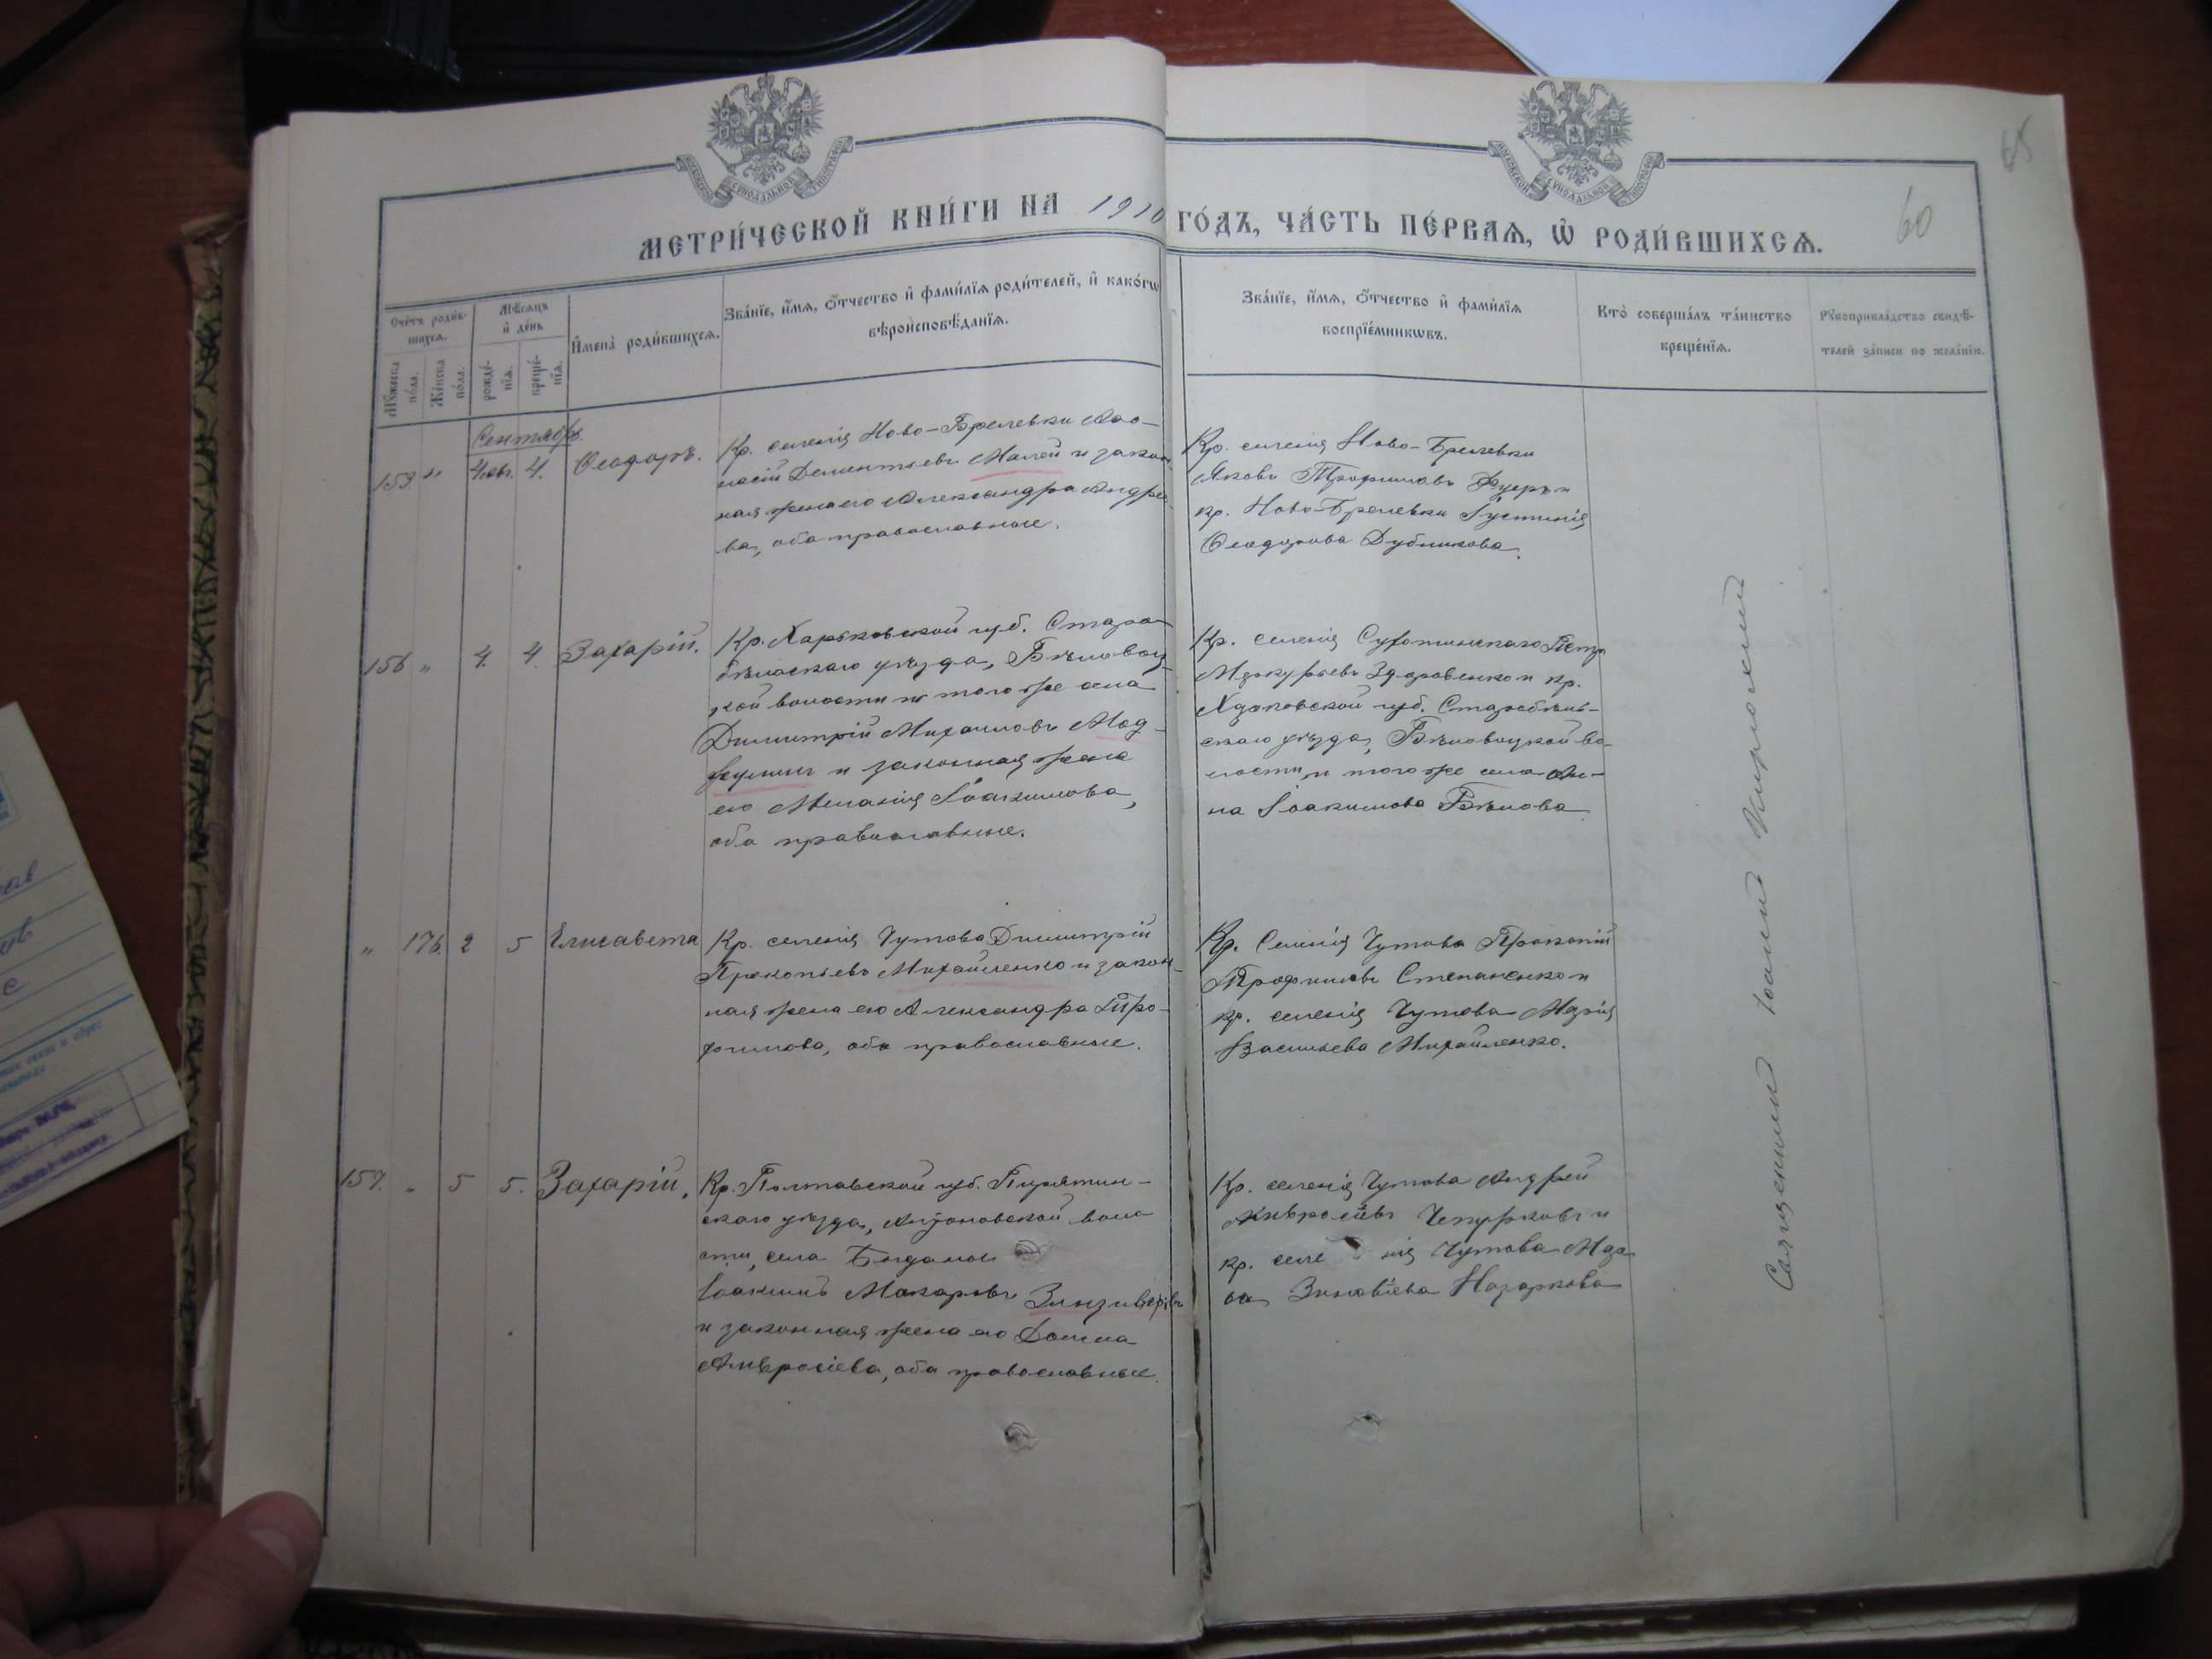 65
60
МОСКОВСКОЙ СѴНОДАЛЬНОЙ ТИПОГРАФІИ
МОСКОВСКОЙ СѴНОДАЛЬНОЙ ТИПОГРАФІИ
МЕТРИ́ЧЕСКОЙ КНИ́ГИ НА 1910 ГО́ДЪ, ЧА́СТЬ ПЕ́РВАѦ, Ѡ҆ РОДИ́ВШИХСѦ.
Сче́тъ роди́в-
шихсѧ.
Мꙋжеска по́ла.
Же́нска по́ла.
Мѣ́сѧцъ
и҆ де́нь
рожде́-
нїѧ.
креще́-
нїѧ.
И҆мена̀ роди́вшихсѧ.
Зва́нїе, и҆́мѧ, ѻ҆́тчество и҆ фами́лїѧ роди́телей, и҆ како́гѡ
вѣроисповѣ́данїѧ.
Зва́нїе, и҆́мѧ, ѻ҆́тчество и҆ фами́лїѧ
воспрїе́мникѡвъ.
Кто̀ соверша́лъ та́инство
креще́нїѧ.
Рꙋкоприкла́дство свидѣ́-
телей за́писи по жела́нїю.
Сентябрь.
153 " 4. Ѳеодоръ.
Кр. селенія Ново-Брелевки Аѳа-
насій Дементьевъ Малей и закон-
ная жена его Александра Андрее-
ва, оба православные.
Кр. селенія Ново-Брелевки
Яковъ Трофимовъ и
кр. Ново-Брелевки Іустинія
Ѳеодорова Дубникова.
156 " 4. 4. Захарій.
Кр. Харьковской губ. Старо-
бѣльскаго уѣзда, Бѣловод-
ской волости и того же села
Димитрій Михаиловъ
и законная жена
его Меланія Іоакимова,
оба православные.
Кр. селенія Петръ
Меркурьевъ Здоровенко и кр.
Харьковской губ. Старобѣль-
скаго уѣзда, Бѣловодской во-
лости, и того же села Ан-
на Іоакимова Бѣлова
" 176. 2 5 Елисавета
Кр. селенія Чутова Димитрій
Прокопьевъ Михайленко и закон-
ная жена его Александра Тро-
фимова, оба православные.
Кр. Селенія Чутова Прокопій
Трофимовъ Степаненко и
кр. селенія Чутова Марія
Васильева Михайленко.
157. " 5 5. Захарій.
Кр. Полтавской губ. Пирятин-
скаго уѣзда, волос-
сти, села
Іоакимъ Макаровъ
и законная жена его Домна
Амвросіева, оба православные.
Кр. селенія Чутова Андрей
Амвросіевъ и
кр. селе нія Чутова
Зиновіева Назаркова
Священникъ Іоаннъ